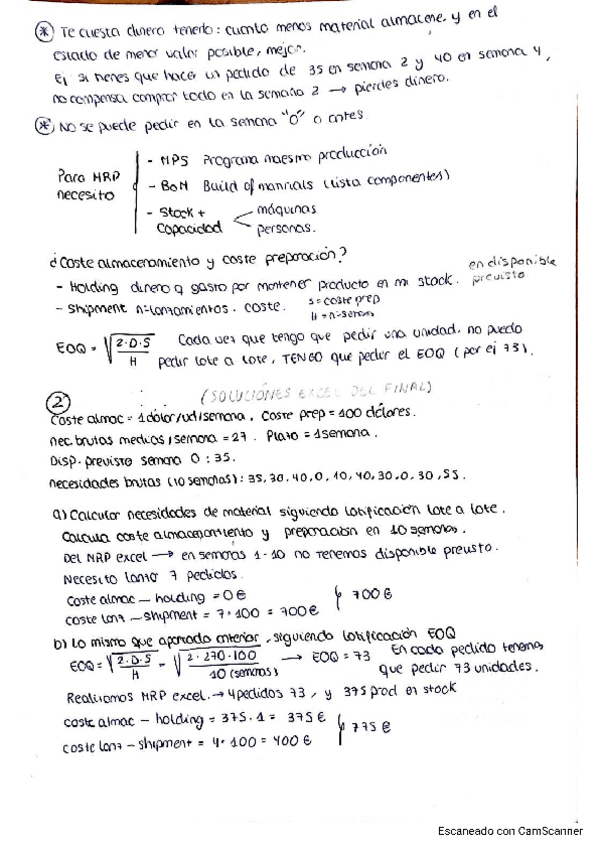 * Te cuesta dinero tenerlo: cuanto menos material almacene, y en el
estado de menor valor posible, mejor.
Ej si tienes que hacer un pedido de 35 en semana 2 y 40 en semana 4,
no compensa comprar todo en la semana 2 → pierdes dinero.
* NO se puede pedir en la semana "0" o antes
Para MRP
necesito
- MPS Programa maestro producción
- BoM Build of manrials (lista componentes)
- Stock +
Capacidad
máquinas
personas.
¿Coste almacenamiento y coste preparación?
- Holding dinero q gasto por mantener producto en mi stock. en disponible
previsto
- Shipment nº lanzamientos. coste. S = coste prep
H = nº semanas
EOQ = √2·D·S/H Cada vez que tengo que pedir una unidad, no puedo
pedir lote a lote, TENGO que pedir el EOQ (por ej 73).
(SOLUCIONES EXCEL DEL FINAL)
2
Coste almac = 1 dólar/ud/semana. Coste prep = 100 dólares.
nec. brutas medias/semana = 27. Plazo = 1 semana.
Disp. previsto semana 0: 35.
necesidades brutas (10 semanas): 35, 30, 40, 0, 10, 40, 30, 0, 30, 55.
a) Calcular necesidades de material siguiendo lotificación lote a lote.
Calcula coste almacenamiento y preparación en 10 semanas.
Del MRP excel → en semanas 1-10 no tenemos disponible previsto.
Necesito lanzar 7 pedidos.
coste almac - holding = 0€
700€
coste lanz - shipment = 7·100 = 700€
b) Lo mismo que apartado anterior, siguiendo lotificación EOQ
EOQ = √2·D·S/H = √2·270·100/10 (semanas) → EOQ = 73 En cada pedido tenemos
que pedir 73 unidades.
Realizamos MRP excel. → 4 pedidos 73, y 375 prod en stock
coste almac - holding = 375·1 = 375€
775€
coste lanz - shipment = 4·100 = 400€
Escaneado con CamScanner